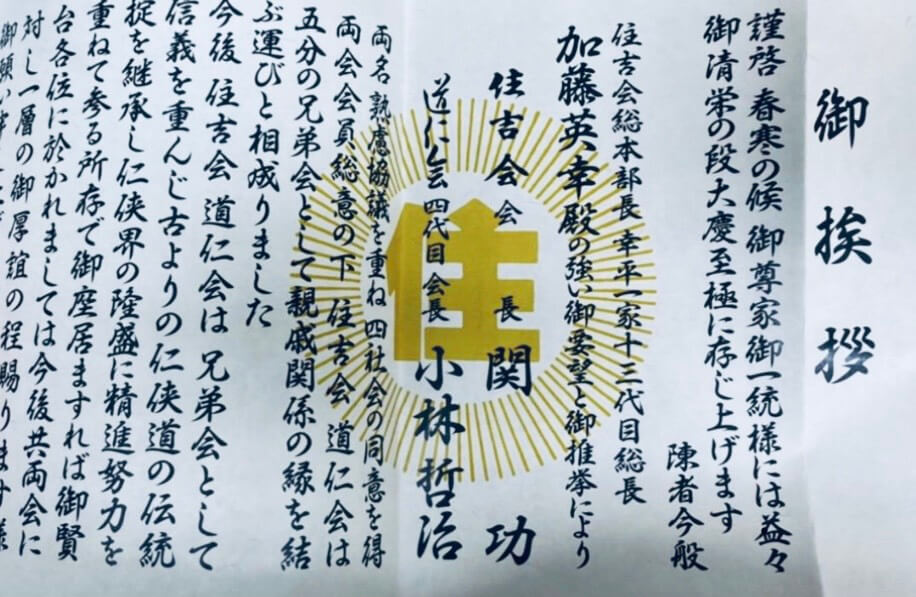 御挨拶
謹啓 春寒の候 御尊家御一統様には益々
御清栄の段大慶至極に存じ上げます
陳者今般
住吉会総本部長 幸平一家十三代目総長
加藤英幸殿の強い御要望と御推挙により
住吉会会長 関功
道仁会四代目会長 小林哲治
両名熟慮協議を重ね 四社会の同意を得
両会会員総意の下 住吉会 道仁会は
五分の兄弟会として親戚関係の縁を結
ぶ運びと相成りました
今後 住吉会 道仁会は 兄弟会として
信義を重んじ古よりの仁侠道の伝統
掟を継承し仁侠界の隆盛に精進努力を
重ねて参る所存で御座居ますれば御賢
台各位に於かれましては今後共両会に
対し一層の御厚誼の程賜ります様
住